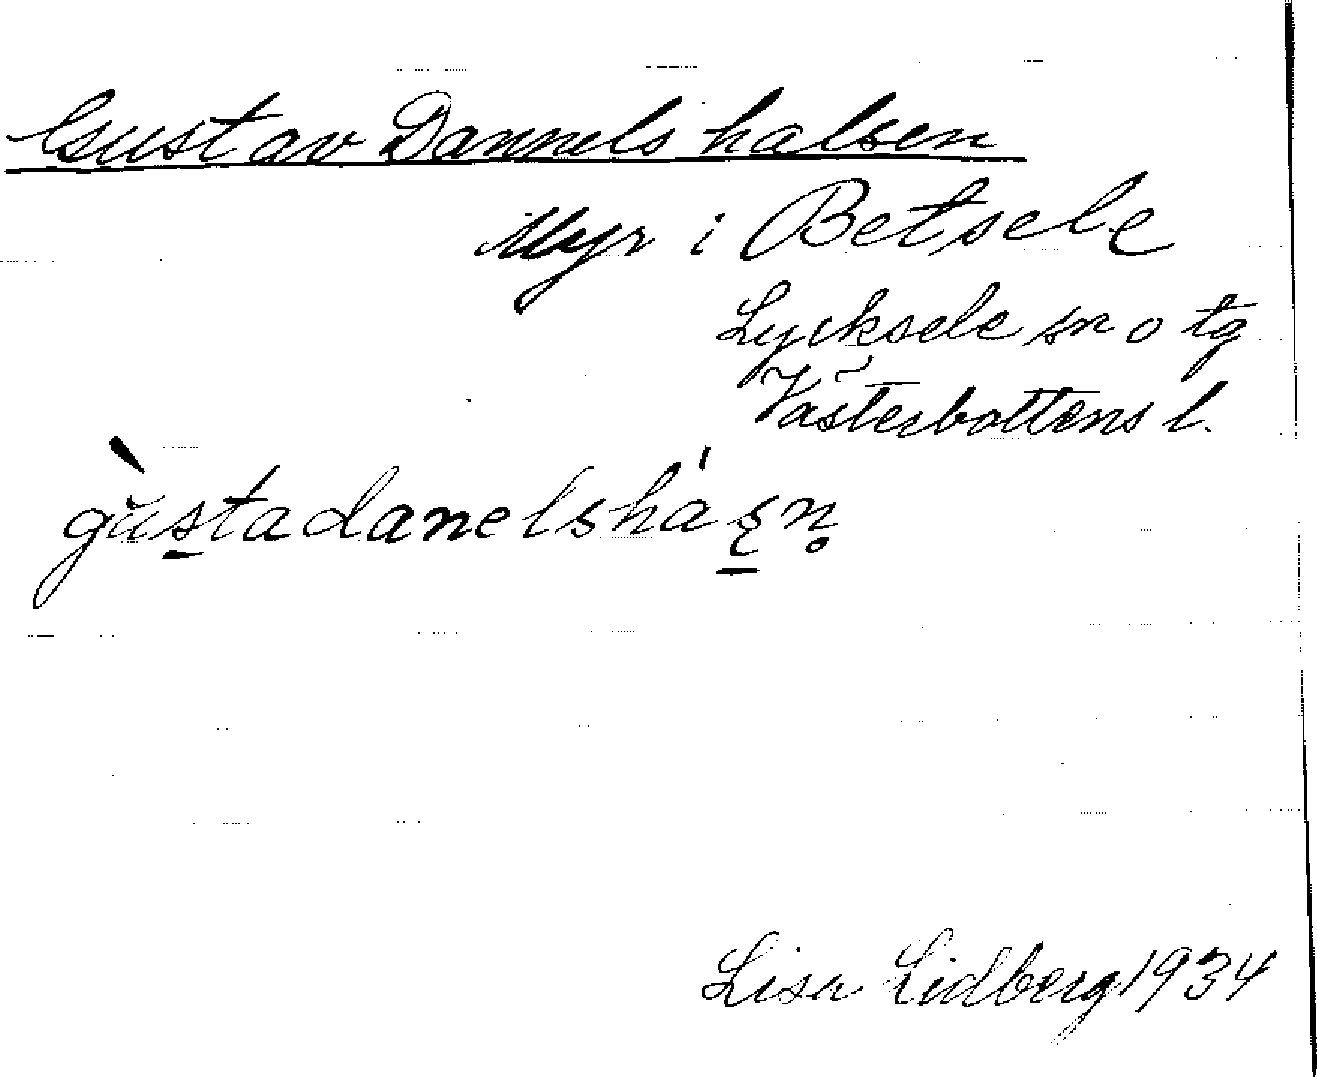 Gustav Dannelshalsen
Myr i Betsele
Lycksele sn o tg
Västerbottens l.
Lisa Lidberg 1934